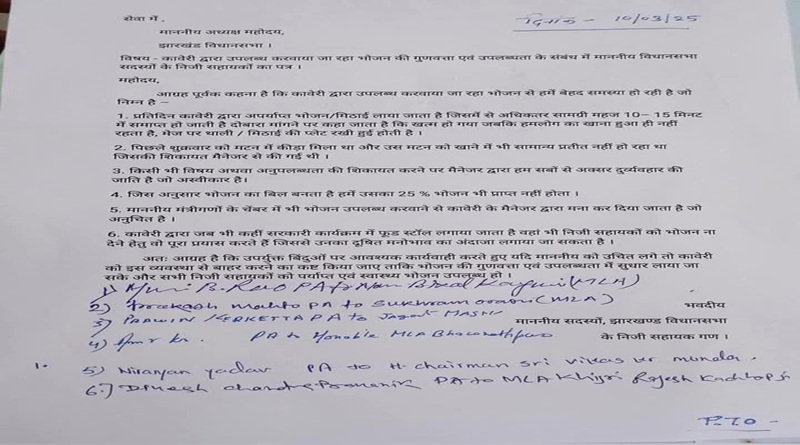 सेवा में ,
दिनांक - 10/03/25
माननीय अध्यक्ष महोदय,
झारखंड विधानसभा ।
विषय - कावेरी द्वारा उपलब्ध करवाया जा रहा भोजन की गुणवत्ता एवं उपलब्धता के संबंध में माननीय विधानसभा
सदस्यों के निजी सहायकों का पत्र ।
महोदय,
आग्रह पूर्वक कहना है कि कावेरी द्वारा उपलब्ध करवाया जा रहा भोजन से हमें बेहद समस्या हो रही है जो
निम्न है –
1. प्रतिदिन कावेरी द्वारा अपर्याप्त भोजन/मिठाई लाया जाता है जिसमें से अधिकतर सामग्री महज 10– 15 मिनट
में समाप्त हो जाती है दोबारा मांगने पर कहा जाता है कि खत्म हो गया जबकि हमलोग का खाना हुआ ही नहीं
रहता है, मेज पर थाली / मिठाई की प्लेट रखी हुई होती है ।
2. पिछले शुक्रवार को मटन में कीड़ा मिला था और उस मटन को खाने में भी सामान्य प्रतीत नहीं हो रहा था
जिसकी शिकायत मैनेजर से की गई थी ।
3. किसी भी विषय अथवा अनुपलब्धता की शिकायत करने पर मैनेजर द्वारा हम सबों से अक्सर दुर्व्यवहार की
जाति है जो अस्वीकार है।
4. जिस अनुसार भोजन का बिल बनता है हमें उसका 25 % भोजन भी प्राप्त नहीं होता ।
5. माननीय मंत्रीगणों के चेंबर में भी भोजन उपलब्ध करवाने से कावेरी के मैनेजर द्वारा मना कर दिया जाता है जो
अनुचित है ।
6. कावेरी द्वारा जब भी कहीं सरकारी कार्यक्रम में फूड स्टॉल लगाया जाता है वहां भी निजी सहायकों को भोजन ना
देने हेतु वो पूरा प्रयास करते हैं जिससे उनका दूषित मनोभाव का अंदाजा लगाया जा सकता है ।
अतः आग्रह है कि उपर्युक्त बिंदुओं पर आवश्यक कार्यवाही करते हुए यदि माननीय को उचित लगे तो कावेरी
को इस व्यवस्था से बाहर करने का कष्ट किया जाए ताकि भोजन की गुणवत्ता एवं उपलब्धता में सुधार लाया जा
सके और सभी निजी सहायकों को पर्याप्त एवं स्वास्थ्य भोजन उपलब्ध हो ।
1) B. Rao PA to (MLA)
2) Prakash Mahto PA to Sukhram oraon (MLA)
भवदीय
3) PRAWIN KERKETTA PA to Jagat MASHI
माननीय सदस्यों, झारखण्ड विधानसभा
4) Kr. PA to Honable MLA
के निजी सहायक गण ।
1.
5) Niranjan yadav PA to H chairman sri vikas kr munda.
6.) Dinesh chandra Pramanik PA to MLA Khijri Rajesh Kachhap
P.T.O -